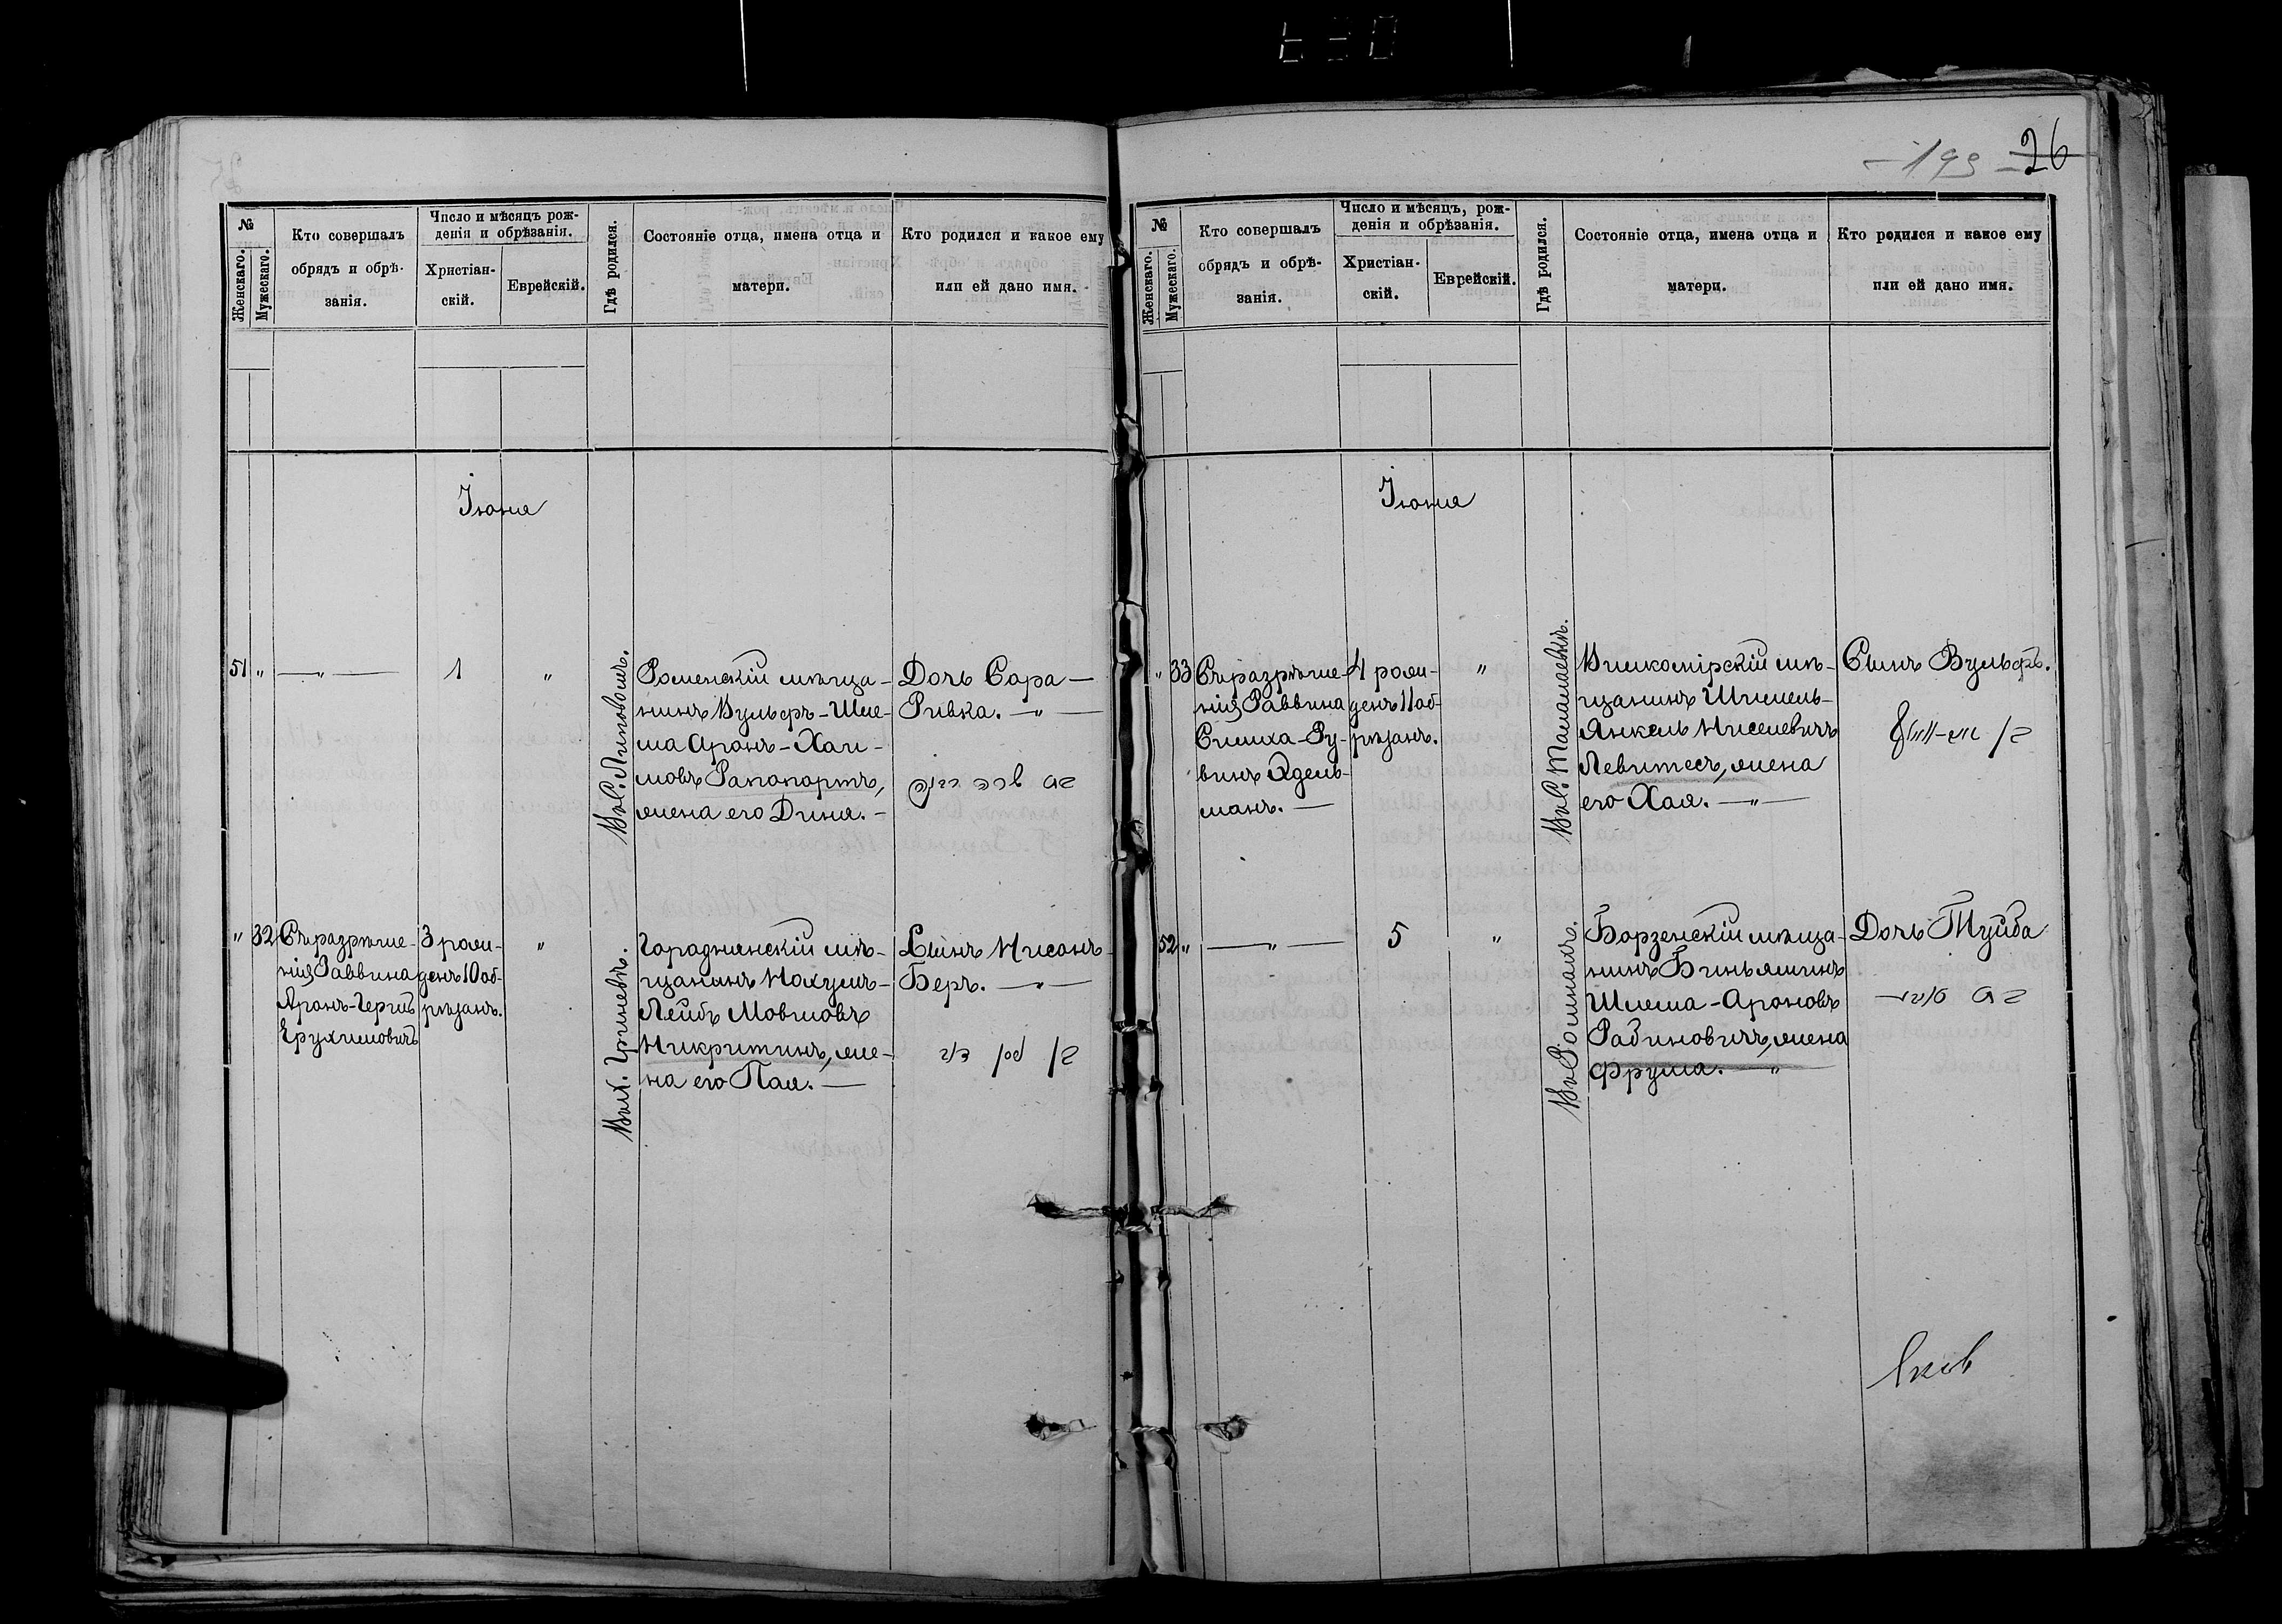 - 193 - 26
№
Женскаго.
Мужескаго.
Кто совершалъ
обрядъ и обрѣ-
занія.
Число и мѣсяцъ рож-
денія и обрѣзанія.
Христіан-
скій.
Еврейскій.
Гдѣ родился.
Состояніе отца, имена отца и
матери.
Кто родился и какое ему
или ей дано имя.
Іюня
51
"
— " —
1
"
Въ С. Липовомъ.
Роменскій мѣща-
нинъ Вульфъ-Шле-
ма Аронъ-Хаи-
мовъ Рапопортъ,
жена его Дина. -
Дочь Сара -
Ривка. - " -
"
32
Съ разрѣше-
нія Раввина
Аронъ-Герцъ
Ерухимовичъ
3 рож-
денъ 10 об-
рѣзанъ.
"
Гриневкѣ.
Городнянскій мѣ-
щанинъ Нохумъ-
Лейбъ Мовшовъ
Никритинъ, же-
на его Пая. —
Сынъ Нисонъ-
Беръ. - " -
בן נסן בער
№
Женскаго.
Мужескаго.
Кто совершалъ
обрядъ и обрѣ-
занія.
Число и мѣсяцъ, рож-
денія и обрѣзанія.
Христіан-
скій.
Еврейскій.
Гдѣ родился.
Состояніе отца, имена отца и
матери.
Кто родился и какое ему
или ей дано имя.
Іюня
"
33
Съ разрѣше-
нія Раввина
Симха-Ру-
винъ Адель-
манъ. —
4 рож-
денъ 11 об-
рѣзанъ.
"
Въ С. Талалаевкѣ.
Вилкомірскій мѣ-
щанинъ Шмуель-
Янкель Ниселевичъ
Левитесъ, жена
его Хая. - " -
Сынъ Вульфъ.
52
"
— " —
5
"
Въ Ромнахъ.
Борзенскій мѣща-
нинъ Биньяминъ
Шлема-Ароновъ
Рабиновичъ, жена
Фрума. - " -
Дочь Туйба